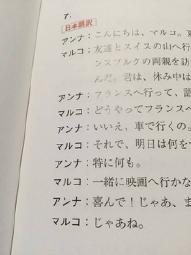 7.
日本語訳
アンナ：こんにちは、マルコ。
マルコ：友達とスイスの山へ行
ンスブルクの両親を訪
んだ。君は、休み中は
アンナ：フランスへ行って、
マルコ：どうやってフランスへ
アンナ：いいえ、車で行くの。
マルコ：それで、明日は何を
アンナ：特に何も。
マルコ：一緒に映画へ行かな
アンナ：喜んで！じゃあ、ま
マルコ：じゃあね。